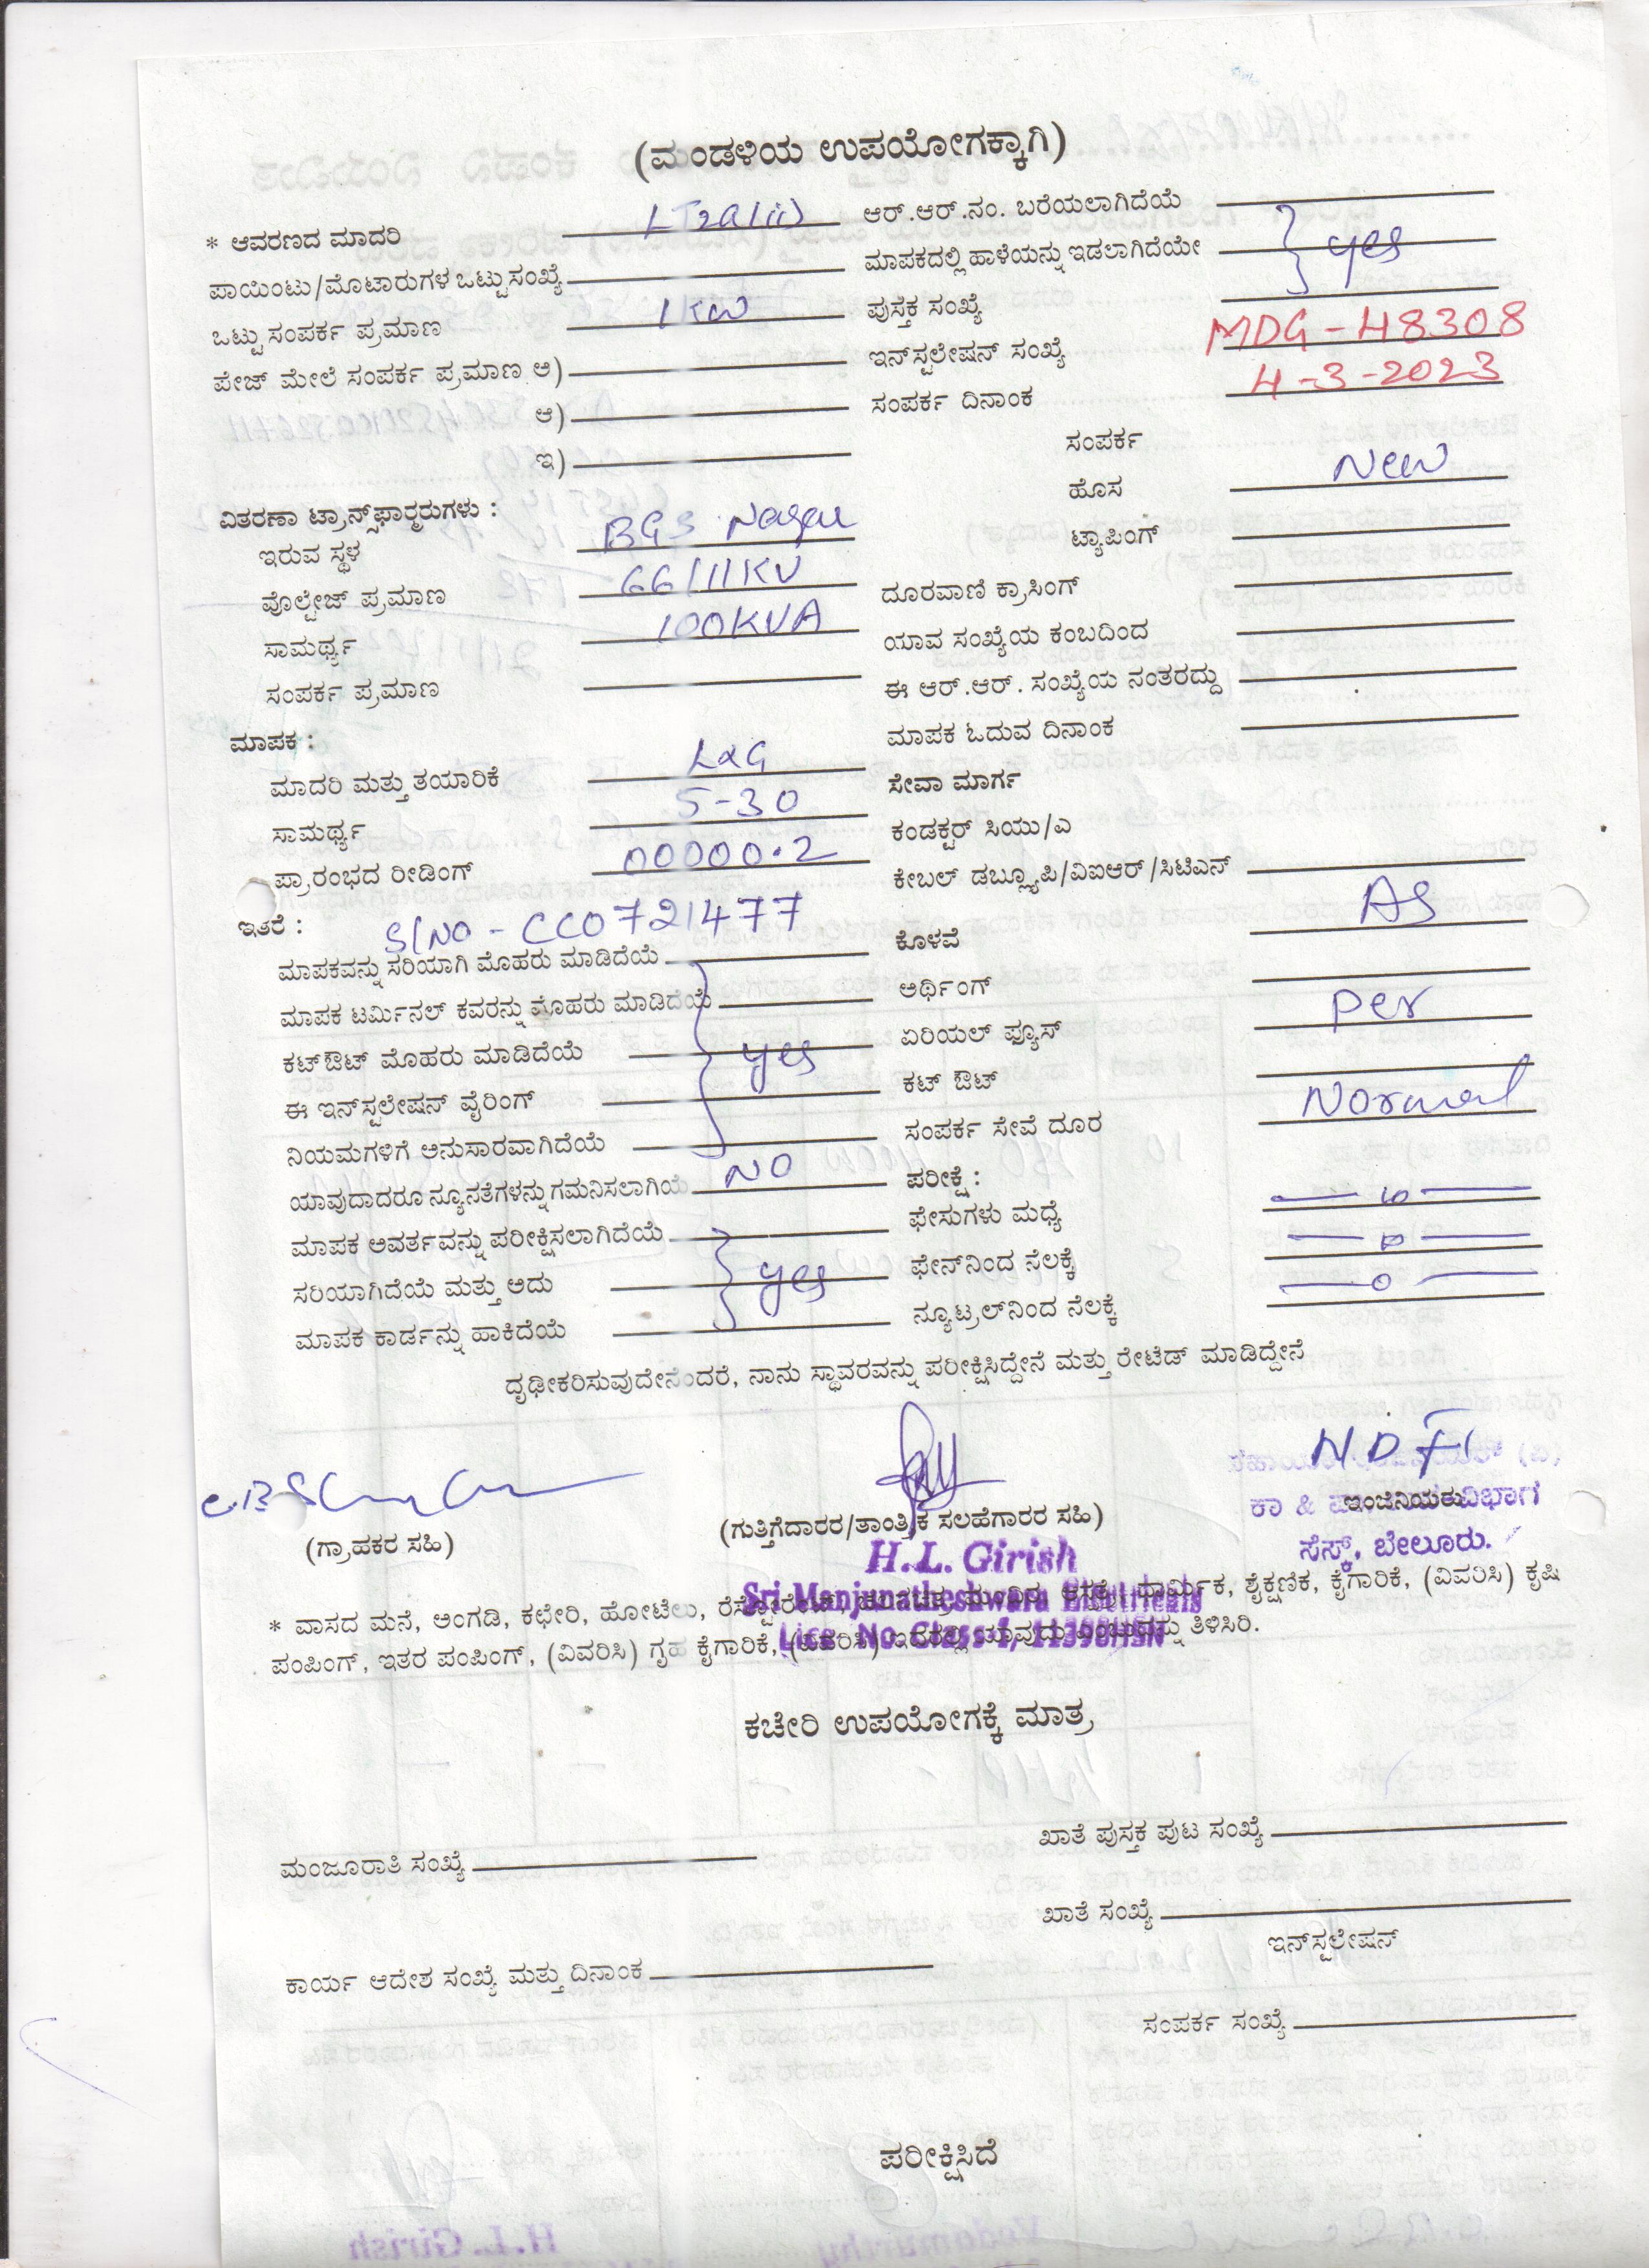 (ಮಂಡಳಿಯ ಉಪಯೋಗಕ್ಕಾಗಿ)
* ಆವರಣದ ಮಾದರಿ LT2a(ii) ಆರ್.ಆರ್.ನಂ. ಬರೆಯಲಾಗಿದೆಯೆ
ಪಾಯಿಂಟು/ಮೊಟಾರುಗಳ ಒಟ್ಟು ಸಂಖ್ಯೆ ಮಾಪಕದಲ್ಲಿ ಹಾಳೆಯನ್ನು ಇಡಲಾಗಿದೆಯೇ yes
ಒಟ್ಟು ಸಂಪರ್ಕ ಪ್ರಮಾಣ 1KW ಪುಸ್ತಕ ಸಂಖ್ಯೆ
ಪೇಜ್ ಮೇಲೆ ಸಂಪರ್ಕ ಪ್ರಮಾಣ ಅ) ಇನ್‌ಸ್ಟಲೇಷನ್ ಸಂಖ್ಯೆ MDG-48308
ಆ) ಸಂಪರ್ಕ ದಿನಾಂಕ 4-3-2023
ಇ) ಸಂಪರ್ಕ
ಹೊಸ New
ವಿತರಣಾ ಟ್ರಾನ್ಸ್‌ಫಾರ್‍ಮರುಗಳು :
ಇರುವ ಸ್ಥಳ BGS Nagar ಟ್ಯಾಪಿಂಗ್
ವೊಲ್ಟೇಜ್ ಪ್ರಮಾಣ 66/11KV ದೂರವಾಣಿ ಕ್ರಾಸಿಂಗ್
ಸಾಮರ್ಥ್ಯ 100KVA ಯಾವ ಸಂಖ್ಯೆಯ ಕಂಬದಿಂದ
ಸಂಪರ್ಕ ಪ್ರಮಾಣ ಈ ಆರ್.ಆರ್. ಸಂಖ್ಯೆಯ ನಂತರದ್ದು
ಮಾಪಕ : ಮಾಪಕ ಓದುವ ದಿನಾಂಕ
ಮಾದರಿ ಮತ್ತು ತಯಾರಿಕೆ L&G ಸೇವಾ ಮಾರ್ಗ
ಸಾಮರ್ಥ್ಯ 5-30 ಕಂಡಕ್ಟರ್ ಸಿಯು/ಎ
ಪ್ರಾರಂಭದ ರೀಡಿಂಗ್ 00000.2 ಕೇಬಲ್ ಡಬ್ಲ್ಯೂಪಿ/ವಿಐಆರ್/ಸಿಟಿಎನ್
ಇತರೆ : S/NO - CC0721477 ಕೊಳವೆ AS
ಮಾಪಕವನ್ನು ಸರಿಯಾಗಿ ಮೊಹರು ಮಾಡಿದೆಯೆ
ಮಾಪಕ ಟರ್ಮಿನಲ್ ಕವರನ್ನು ಮೊಹರು ಮಾಡಿದೆಯೆ ಅರ್ಥಿಂಗ್
ಕಟ್‌ಔಟ್ ಮೊಹರು ಮಾಡಿದೆಯೆ yes ಏರಿಯಲ್ ಫ್ಯೂಸ್ Per
ಈ ಇನ್‌ಸ್ಟಲೇಷನ್ ವೈರಿಂಗ್ ಕಟ್ ಔಟ್
ನಿಯಮಗಳಿಗೆ ಅನುಸಾರವಾಗಿದೆಯೆ ಸಂಪರ್ಕ ಸೇವೆ ದೂರ Normal
ಯಾವುದಾದರೂ ನ್ಯೂನತೆಗಳನ್ನು ಗಮನಿಸಲಾಗಿಯೆ NO ಪರೀಕ್ಷೆ :
ಮಾಪಕ ಅವರ್ತವನ್ನು ಪರೀಕ್ಷಿಸಲಾಗಿದೆಯೆ ಫೇಸುಗಳು ಮಧ್ಯೆ
ಸರಿಯಾಗಿದೆಯೆ ಮತ್ತು ಅದು yes ಫೇನ್‌ನಿಂದ ನೆಲಕ್ಕೆ
ಮಾಪಕ ಕಾರ್ಡನ್ನು ಹಾಕಿದೆಯೆ ನ್ಯೂಟ್ರಲ್‌ನಿಂದ ನೆಲಕ್ಕೆ
ದೃಢೀಕರಿಸುವುದೇನೆಂದರೆ, ನಾನು ಸ್ಥಾವರವನ್ನು ಪರೀಕ್ಷಿಸಿದ್ದೇನೆ ಮತ್ತು ರೇಟೆಡ್ ಮಾಡಿದ್ದೇನೆ
(ಗ್ರಾಹಕರ ಸಹಿ) (ಗುತ್ತಿಗೆದಾರರ/ತಾಂತ್ರಿಕ ಸಲಹೆಗಾರರ ಸಹಿ) ಇಂಜಿನಿಯರು
ಸೆಸ್ಕ್, ಬೇಲೂರು.
H.L. Girish
Sri Manjunatheshwara Electricals
Lice. No. Class-1, 11398HSN
* ವಾಸದ ಮನೆ, ಅಂಗಡಿ, ಕಛೇರಿ, ಹೋಟೆಲು, ಶೈಕ್ಷಣಿಕ, ಕೈಗಾರಿಕೆ, (ವಿವರಿಸಿ) ಕೃಷಿ
ಪಂಪಿಂಗ್, ಇತರ ಪಂಪಿಂಗ್, (ವಿವರಿಸಿ) ಗೃಹ ಕೈಗಾರಿಕೆ, (ವಿವರಿಸಿ) ತಿಳಿಸಿರಿ.
ಕಚೇರಿ ಉಪಯೋಗಕ್ಕೆ ಮಾತ್ರ
ಖಾತೆ ಪುಸ್ತಕ ಪುಟ ಸಂಖ್ಯೆ
ಮಂಜೂರಾತಿ ಸಂಖ್ಯೆ
ಖಾತೆ ಸಂಖ್ಯೆ
ಇನ್‌ಸ್ಟಲೇಷನ್
ಕಾರ್ಯ ಆದೇಶ ಸಂಖ್ಯೆ ಮತ್ತು ದಿನಾಂಕ
ಸಂಪರ್ಕ ಸಂಖ್ಯೆ
ಪರೀಕ್ಷಿಸಿದೆ